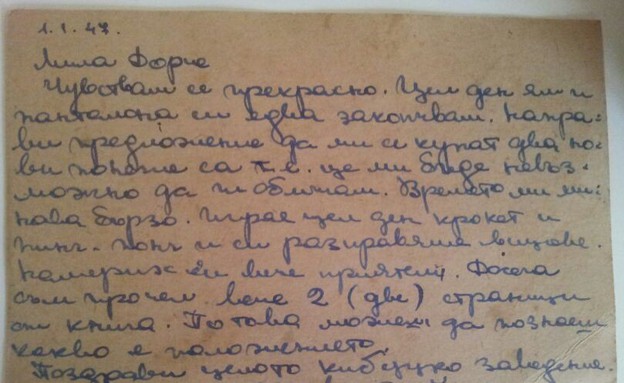 1.1.47.
Мила Форче
Чувствам се прекрасно. Цел ден ям и
панталона си едва закопчвам. Напра=
ви предложение да ми се купят два но=
ви понеже са т.е. ще ми бъде невъз-
можно да ги обличам. Времето ми ми=
нава бързо. Играе цел ден крокет и
пинг-понг и си разправяме вицове.
вече приятели. Досега
съм прочел вече 2 (две) страници
от книга. По това можеш да познаеш
какво е положението.
Поздрави целото заведение.